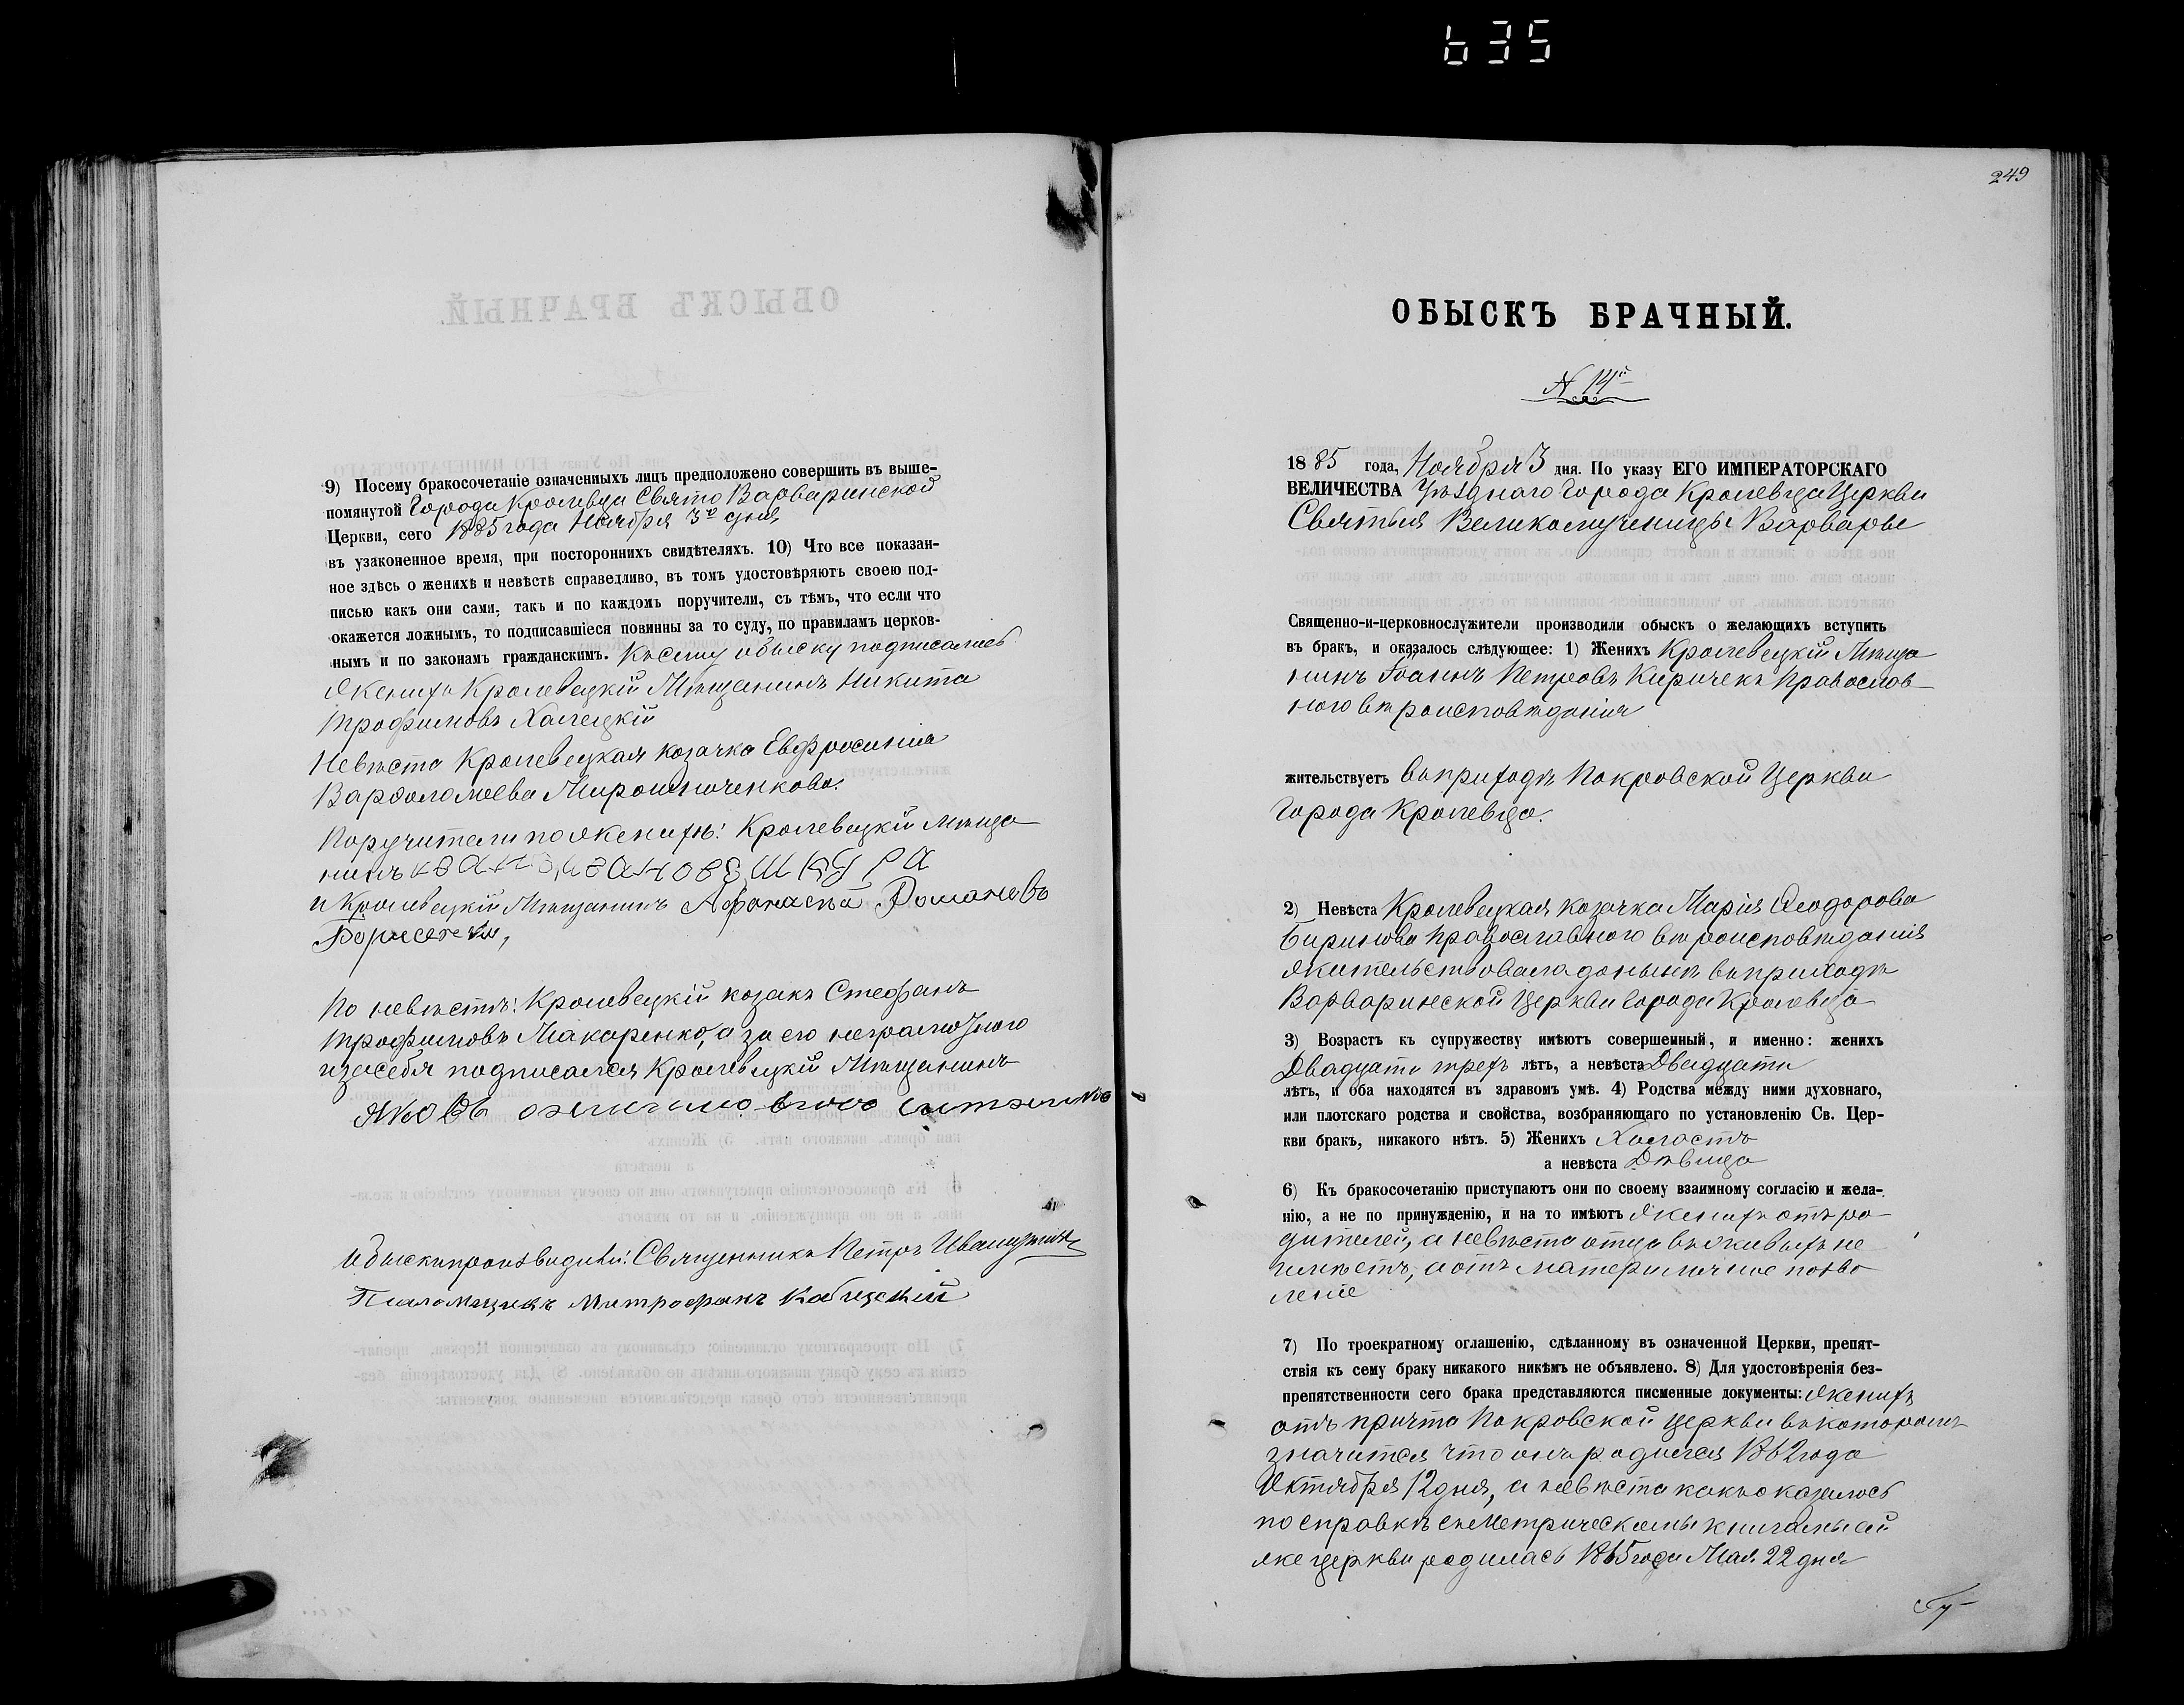 635
9) Посему бракосочетаніе означенныхъ лицъ предположено совершить въ выше-
помянутой Города Кролевца Свято Варваринской
Церкви, сего 1885 года Ноября 3го дня,
въ узаконенное время, при постороннихъ свидѣтеляхъ. 10) Что все показан-
ное здѣсь о женихѣ и невѣстѣ справедливо, въ томъ удостовѣряютъ своею под-
писью какъ они сами, такъ и по каждомъ поручители, съ тѣмъ, что если что
окажется ложнымъ, то подписавшіеся повинны за то суду, по правиламъ церков-
нымъ и по законамъ гражданскимъ. Къ сему обыску подписались
Женихъ Кролевецкій Мѣщанинъ Никита
Трофимовъ Халецкій
Невѣста Кролевецкая козачка Евфросинія
Варфоломеева Мирошниченкова.
Поручители по женихѣ: Кролевецкій мѣща-
нинъ иванъ,ивановъ,шкура
и Кролевецкій Мѣщанинъ Афанасій Романовъ
По невѣстѣ: Кролевецкій козакъ Стефанъ
Трофимовъ Макаренко, а за его неграмотного
и за себя подписался Кролевецкій Мѣщанинъ
Яковъ
Обыскъ производили: Священникъ Петръ
Псаломщикъ Митрофанъ
249
ОБЫСКЪ БРАЧНЫЙ.
N 14й
1885 года, Ноября 3 дня. По указу ЕГО ИМПЕРАТОРСКАГО
ВЕЛИЧЕСТВА Уѣзднаго Города Кролевца Церкви
Святыя Великомученицы Варвары
Священно-и-церковнослужители производили обыскъ о желающихъ вступить
въ бракъ, и оказалось слѣдующее: 1) Женихъ Кролевецкій Мѣща-
нинъ Іоаннъ Петровъ Киричекъ Православ-
ного вѣроисповѣданія
жительствуетъ въ приходѣ Покровской Церкви
Города Кролевца.
2) Невѣста Кролевецкая козачка Марія Ѳеодорова
Бирикова Православного вѣроисповѣданія
жительствовала донынѣ въ приходѣ
Варваринской Церкви Города Кролевца
3) Возрастъ къ супружеству имѣютъ совершенный, и именно: женихъ
Двадцати трехъ лѣтъ, а невѣста Двадцати
лѣтъ, и оба находятся въ здравомъ умѣ. 4) Родства между ними духовнаго,
или плотскаго родства и свойства, возбраняющаго по установленію Св. Цер-
кви бракъ, никакого нѣтъ. 5) Женихъ Холостъ
а невѣста Дѣвица
6) Къ бракосочетанію приступаютъ они по своему взаимному согласію и жела-
нію, а не по принужденію, и на то имѣютъ Женихъ отъ ро-
дителей, а невѣста отца въ живыхъ не
имѣетъ, а отъ матери личное позво-
леніе
7) По троекратному оглашенію, сдѣланному въ означенной Церкви, препят-
ствія къ сему браку никакого никѣмъ не объявлено. 8) Для удостовѣренія без-
препятственности сего брака представляются писменные документы: Женихъ
отъ причта Покровской церкви въ которомъ
значится что онъ родился 1862 года
Октября 12 дня, а невѣста какъ оказалось
по справкѣ съ Метрическимы книгамы сій
же церкви родилась 1865 года Мая 22 дня